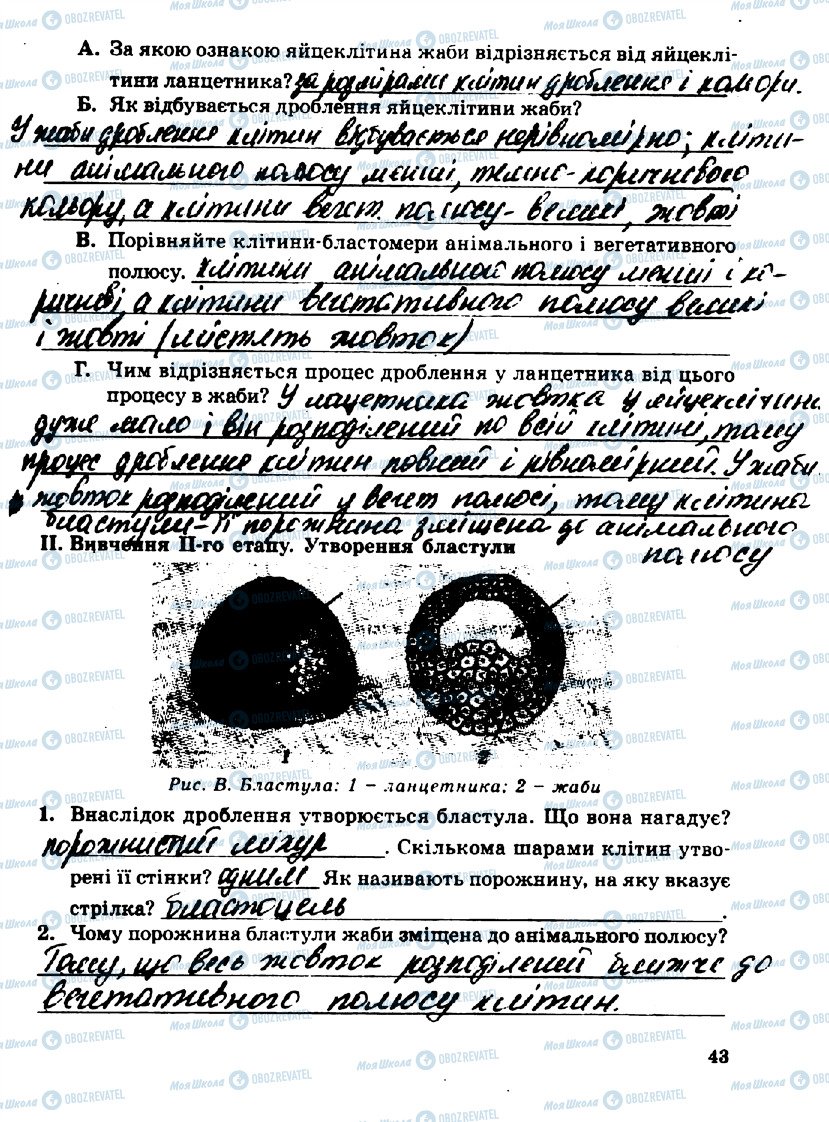 А. За якою ознакою яйцеклітина жаби відрізняється від яйцеклі-
тини ланцетника? за розмірами клітин дроблення і кольори.
Б. Як відбувається дроблення яйцеклітини жаби?
У жаби дроблення клітин відбувається нерівномірно; кліти-
ни анімального полюсу менші, темно-коричневого
кольору, а клітини вегет. полюсу - великі, жовті
В. Порівняйте клітини-бластомери анімального і вегетативного
полюсу. Клітини анімального полюсу менші і ко-
ричневі, а клітини вегетативного полюсу великі
і жовті (містять жовток)
Г. Чим відрізняється процес дроблення у ланцетника від цього
процесу в жаби? У лацетника жовтка у яйцеклітині
дуже мало і він розподілений по всій клітині, тому
процес дроблення клітин повний і рівномірний. У жаби
жовток розподілений у вегет полюсі, тому клітина
бластули - її порожнина зміщена до анімального
полюсу
II. Вивчення II-го етапу. Утворення бластули
1 2
Рис. В. Бластула: 1 – ланцетника; 2 – жаби
1. Внаслідок дроблення утворюється бластула. Що вона нагадує?
порожнистий міхур. Скількома шарами клітин утво-
рені її стінки? одним Як називають порожнину, на яку вказує
стрілка? бластоцель.
2. Чому порожнина бластули жаби зміщена до анімального полюсу?
Тому, що весь жовток розподілений ближче до
вегетативного полюсу клітин.
43